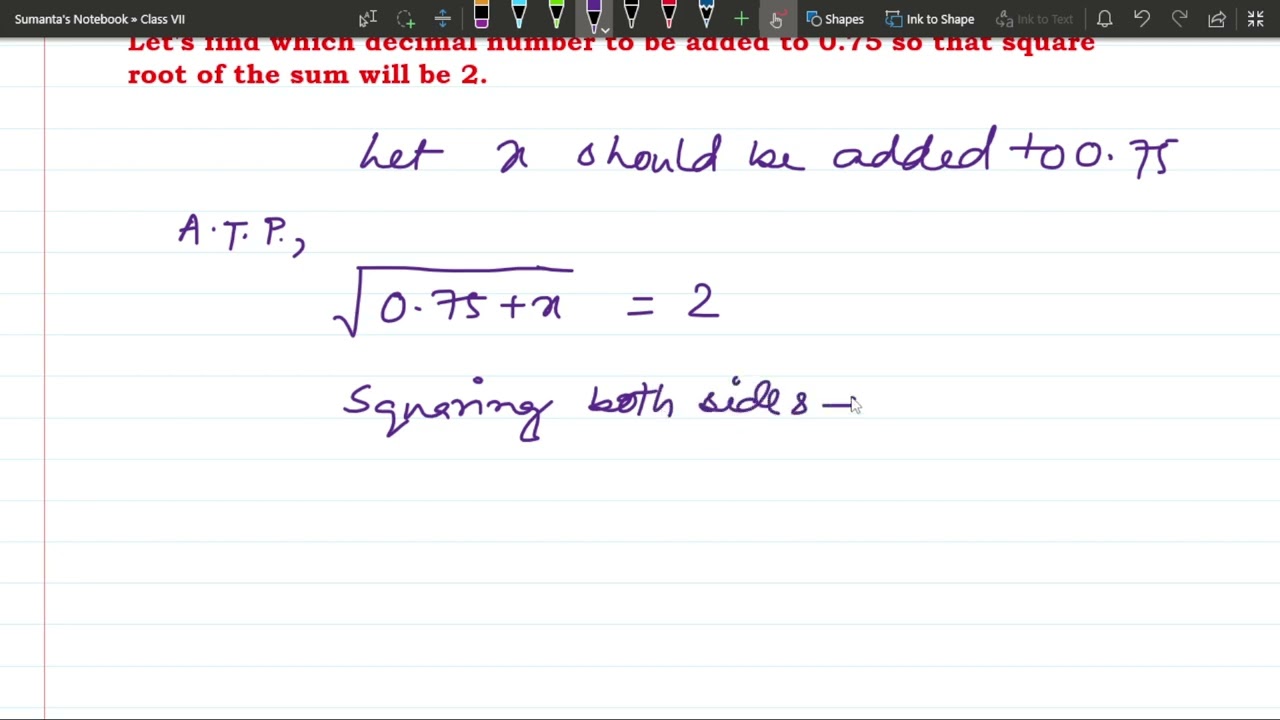 Sumanta's Notebook » Class VII
Shapes
Ink to Shape
Ink to Text
Let's find which decimal number to be added to 0.75 so that square
root of the sum will be 2.
Let x should be added to 0.75
A.T.P.,
√0.75+x = 2
Squaring both sides —